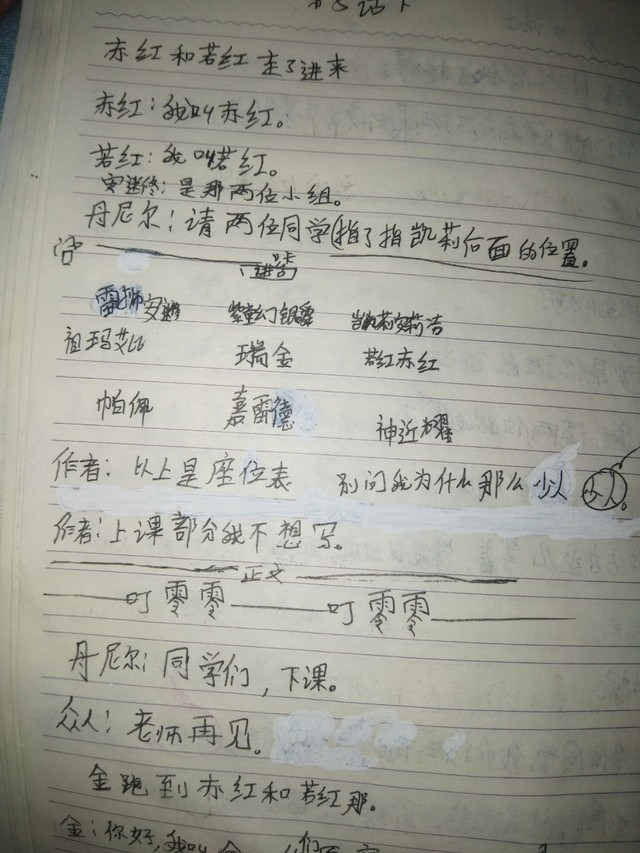 赤红和若红走了进来
赤红：我叫赤红。
若红：我叫若红。
安迷修：是那两位小组。
丹尼尔：请两位同学(指了指凯莉后面的位置。
讲台
雷狮安迷 紫堂幻银爵 凯莉安莉洁
祖玛艾比 瑞金 若红赤红
帕佩 嘉雷德 神近耀
作者：以上是座位表 别问我为什么那么少人
作者：上课部分我不想写。
正文
——叮零零——叮零零——
丹尼尔：同学们，下课。
众人：老师再见。
金跑到赤红和若红那。
金：你好，我叫金